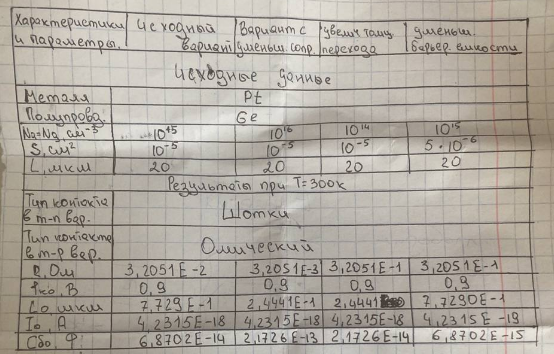 Характеристики и параметры. Исходный вариант Вариант с уменьш. сопр. увелич толщ перехода уменьш. барьер. емкости
Исходные данные
Металл Pt
Полупровод. Ge
Na=Ng, см⁻³ 10⁺¹⁵ 10¹⁶ 10¹⁴ 10¹⁵
S, см² 10⁻⁵ 10⁻⁵ 10⁻⁵ 5·10⁻⁶
L, мкм 20 20 20 20
Результаты при T=300к
Тип контакта в m-n вар. Шотки
Тип контакта в m-p вар. Омический
R, Ом 3,2051E-2 3,2051E-3 3,2051E-1 3,2051E-1
φко, В 0,9 0,9 0,9 0,9
Lo мкм 7,729E-1 2,4441E-1 2,4441 7,7290E-1
Io, A 4,2315E-18 4,2315E-18 4,2315E-18 4,2315E-19
Cбо, Ф. 6,8702E-14 2,1726E-13 2,1726E-14 6,8702E-15